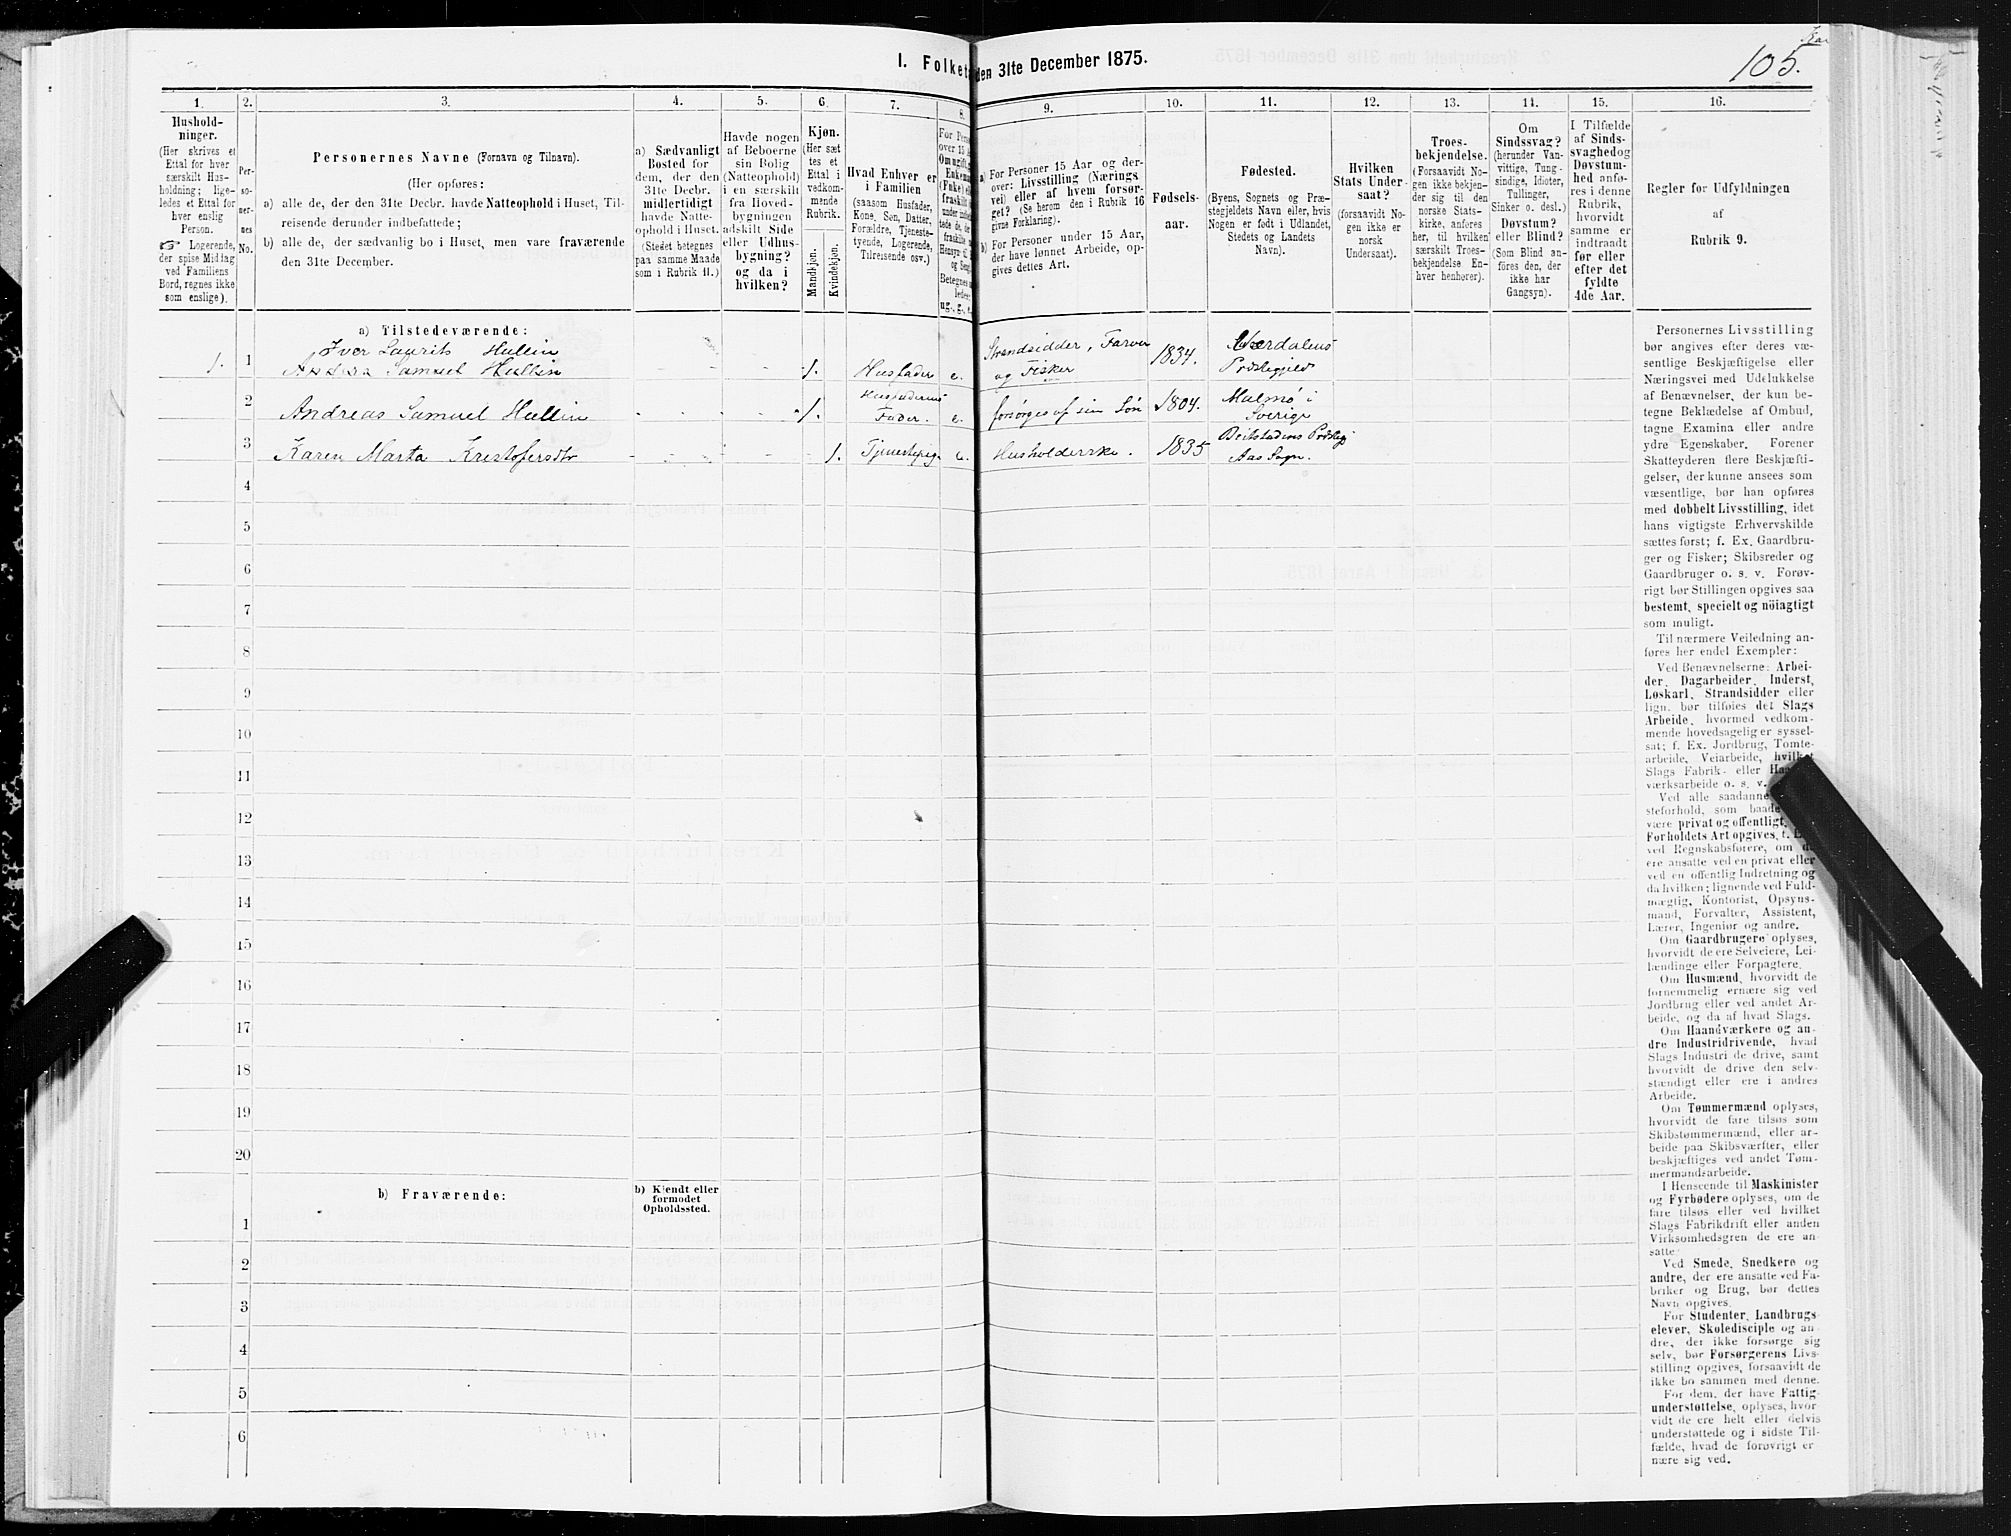 105.
I. Folket den 31te December 1875.
1. 2. 3. 4. 5. 6. 7. 8. 9. 10. 11. 12. 13. 14. 15. 16.
Hushold-
ninger.
(Her skrives et
Ettal for hver
særskilt Hus-
holdning; lige-
ledes et Ettal for
hver enslig
Person.
☞ Logerende,
der spise Middag
ved Familiens
Bord, regnes ikke
som enslige).
Per-
so-
ner-
nes
No.
Personernes Navne (Fornavn og Tilnavn).
(Her opføres:
a) alle de, der den 31te Decbr. havde Natteophold i Huset, Til-
reisende derunder indbefattede;
b) alle de, der sædvanlig bo i Huset, men vare fraværende
den 31te December.
a) Sædvanligt
Bosted for
dem, der den
31te Decbr.
midlertidigt
havde Natte-
ophold i Huset.
(Stedet betegnes
paa samme Maade
som i Rubrik 11.)
Havde nogen
af Beboerne
sin Bolig
(Natteophold)
i en særskilt
fra Hoved-
bygningen
adskilt Side
eller Udhus-
bygning?
og da i
hvilken?
Kjøn.
(Her sæt
tes et
Ettal i
vedkom-
mende
Rubrik.
Mandkjøn.
Kvindekjøn.
Hvad Enhver er
i Familien
(saasom Husfader,
Kone, Søn, Datter,
Forældre, Tjeneste-
tyende, Logerende,
Tilreisende osv.)
For Pers
over 15 A
Om ugift,
Enkema
(Enke) el
fraskilt
ug., g., e.
a) For Personer 15 Aar og der-
over: Livsstilling (Nærings
vei) eller af hvem forsør-
get? (Se herom den i Rubrik 16
givne Forklaring).
b) For Personer under 15 Aar,
der have lønnet Arbeide, op-
gives dettes Art.
Fødsels-
aar.
Fødested.
(Byens, Sognets og Præ-
stegjeldets Navn eller, hvis
Nogen er født i Udlandet,
Stedets og Landets
Navn).
Hvilken
Stats Under-
saat?
(forsaavidt No-
gen ikke er
norsk
Undersaat).
Troes-
bekjendelse.
(Forsaavidt No-
gen ikke bekjen-
der sig til den
norske Stats-
kirke, anføres
her, til hvilken
særskilt Troes-
bekjendelse En-
hver henhører).
Om
Sindssvag?
(herunder Van-
vittige, Tung-
sindige, Idioter,
Tullinger,
Sinker o. desl.)
Døvstum?
eller Blind?
(Som Blind an-
føres den, der
ikke har
Gangsyn).
I Tilfælde
af Sinds-
svaghed og
Døvstum-
hed anfø-
res i denne
Rubrik,
hvorvidt
samme er
indtraadt
før eller
efter det
fyldte
4de Aar.
Regler for Udfyldningen
af
Rubrik 9.
a) Tilstedeværende:
Iver Laurits Hullin
1. 1 Samuel Hullin 1. Husfader e. Strandsidder, Farver og Fisker 1834. Værdalens Præstegjeld
2 Andreas Samuel Hullin 1. Husfaderens Fader. e. forsørges af sin Søn 1804. Malmø i Sverige
3 Karen Marta Kristofersdtr 1. Husholderske. 1835 Beitstadens Præstegj Aas Sogn.
4
5
6
7
8
9
10
11
12
13
14
15
16
17
18
19
20
b) Fraværende:
b) Kjendt eller
formodet
Opholdssted.
1
2
3
4
5
6
Personernes Livsstilling
bør angives efter deres væ-
sentlige Beskjæftigelse eller
Næringsvei med Udelukkelse
af Benævnelser, der kun be-
tegne Beklædelse af Ombud,
tagne Examina eller andre
ydre Egenskaber. Forener
Skatteyderen flere Beskjæfti-
gelser, der kunne ansees som
væsentlige, bør han opføres
med dobbelt Livsstilling, idet
hans vigtigste Erhvervskilde
sættes først; f. Ex. Gaardbru-
ger og Fisker; Skibsreder og
Gaardbruger o. s. v. Forøv-
rigt bør Stillingen opgives saa
bestemt, specielt og nöiagtigt
som muligt.
Til nærmere Veiledning an-
føres her endel Exempler:
Ved Benævnelserne: Arbei-
der, Dagarbeider, Inderst,
Løskarl, Strandsidder eller
lign. bør tilføies det Slags
Arbeide, hvormed vedkom-
mende hovedsagelig er syssel-
sat; f. Ex. Jordbrug, Tomte-
arbeide, Veiarbeide, hvilket
Slags Fabrik- eller
værksarbeide o. s. v.
Ved alle saadanne
steforhold, som baade
være privat og offentligt,
Forholdets Art opgives, f.
ved Regnskabsførere, om
ere ansatte ved en privat eller
ved en offentlig Indretning og
da hvilken; lignende ved Fuld-
mægtig, Kontorist, Opsyns-
mand, Forvalter, Assistent,
Lærer, Ingeniør og andre.
Om Gaardbrugere oplyses,
hvorvidt de ere Selveiere, Lei-
lændinge eller Forpagtere.
Om Husmænd, hvorvidt de
fornemmelig ernære sig ved
Jordbrug eller ved andet Ar-
beide, og da af hvad Slags.
Om Haandværkere og an-
dre Industridrivende, hvad
Slags Industri de drive, samt
hvorvidt de drive den selv-
stændigt eller ere i andres
Arbeide.
Om Tømmermænd oplyses,
hvorvidt de fare tilsøs som
Skibstømmermænd, eller ar-
beide paa Skibsværfter, eller
beskjæftiges ved andet Tøm-
mermandsarbeide.
I Henseende til Maskinister
og Fyrbødere oplyses, om de
fare tilsøs eller ved hvilket
Slags Fabrikdrift eller anden
Virksomhedsgren de ere an-
satte.
Ved Smede, Snedkere og
andre, der ere ansatte ved Fa-
briker og Brug, bør dettes
Navn opgives.
For Studenter, Landbrugs-
elever, Skoledisciple og an-
dre, der ikke forsørge sig
selv, bør Forsørgerens Livs-
stilling opgives, forsaavidt de
ikke bo sammen med denne.
For dem, der have Fattig-
understøttelse, oplyses, hvor-
vidt de ere helt eller delvis
understøttede og i sidste Til-
fælde, hvad de forøvrigt er-
nære sig ved.